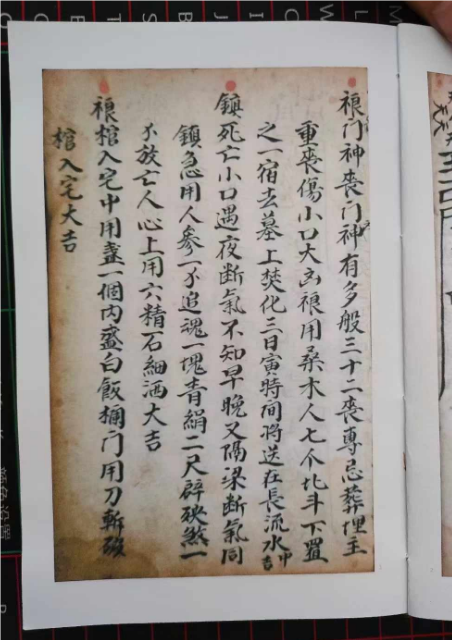 禳门神喪门神有多般三十二喪專忌葬埋主
重喪傷小口大凶禳用桑木人七个北斗下置
之一宿去墓上焚化三日寅時间将送在長流水中吉
鎮死亡小口遇夜断氣不知早晚又隔梁断氣同
鎮急用人參一分追魂一塊青絹二尺辟殃煞一
分放亡人心上用六精石細洒大吉
禳棺入宅中用盞一個内盛白飯 门用刀斬破
棺入宅大吉